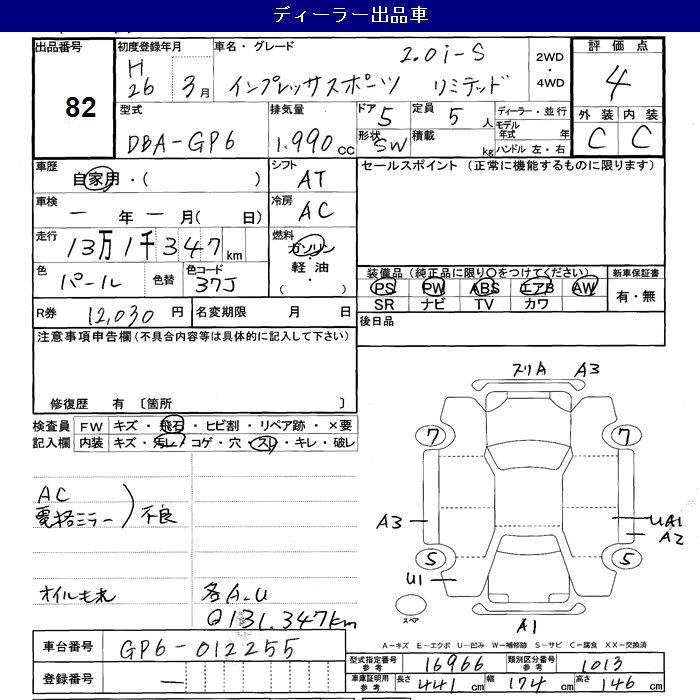 ディーラー出品車
出品番号
82
初度登録年月
H
26 3月
車名・グレード
2.0i-S
インプレッサスポーツ リミテッド
2WD
・
4WD
評価点
4
外装 内装
C C
型式
DBA-GP6
排気量
1.990cc
ドア 5
定員 5人
形状 SW
積載 kg
ディーラー・並行
モデル年式 年
ハンドル 左・右
車歴
自家用・( )
シフト
AT
セールスポイント (正常に機能するものに限ります)
車検
ー年ー月( 日)
冷房
AC
走行
13万1千347km
燃料
ガソリン
・
軽油
( ・ )
色
パール
色替
色コード
37J
装備品(純正品に限り○をつけてください)
PS PW ABS エアB AW
SR ナビ TV カワ
新車保証書
有・無
R券 12,030円
名変期限 月 日
後日品
注意事項申告欄(不具合内容等は具体的に記入して下さい)
修復歴 有 〔箇所 〕
検査員
記入欄
FW キズ・飛石・ヒビ割・リペア跡・×要
内装 キズ・汚レ・コゲ・穴・スレ・キレ・破レ
AC
電格ミラー
不良
オイルモレ
各A.U
Q131.347km
スリA A3
7 7
A3
UA1
A2
5 5
U1
スペア
A1
A-キズ E-エクボ U-凹み W-補修跡 S-サビ C-腐食 XX-交換済
車台番号 GP6-012255
登録番号 ー
型式指定番号 参考 16966
類別区分番号 参考 1013
車庫証明用 参考 長さ 441cm 幅 174cm 高さ 146cm